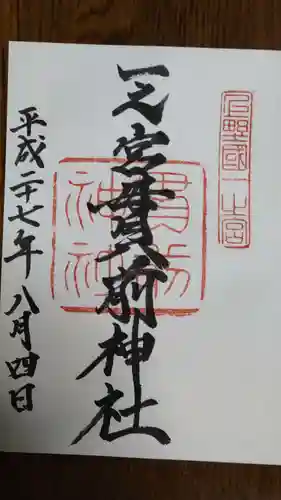 上野國一之宮
一之宮貫前神社
貫前神社
平成二十七年八月四日